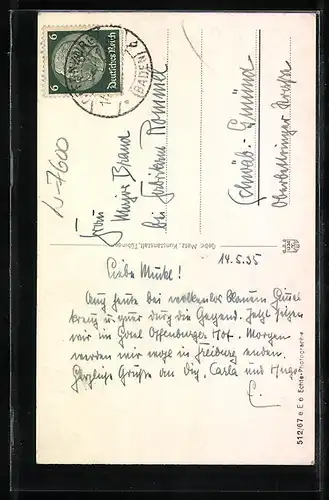 6 Deutsches Reich 6
OFFENBURG
(BADEN)
b
W-7600
Frau
Meyer Brand
bei Fabrikant Rommel
Schwäb. Gmünd
Oberbettringer Straße
Gebr. Metz, Kunstanstalt, Tübingen
14.5.35
Liebe Mukel!
Auch heute bei wolkenlos blauem Himmel
kreuz u. quer durch die Gegend. Jetzt sitzen
wir im Hotel Offenburger Hof. Morgen
werden wir wohl in Freiburg enden.
Herzliche Grüße an Dich, Carla und Hugo
E.
512/67 e E e Echte Photographie